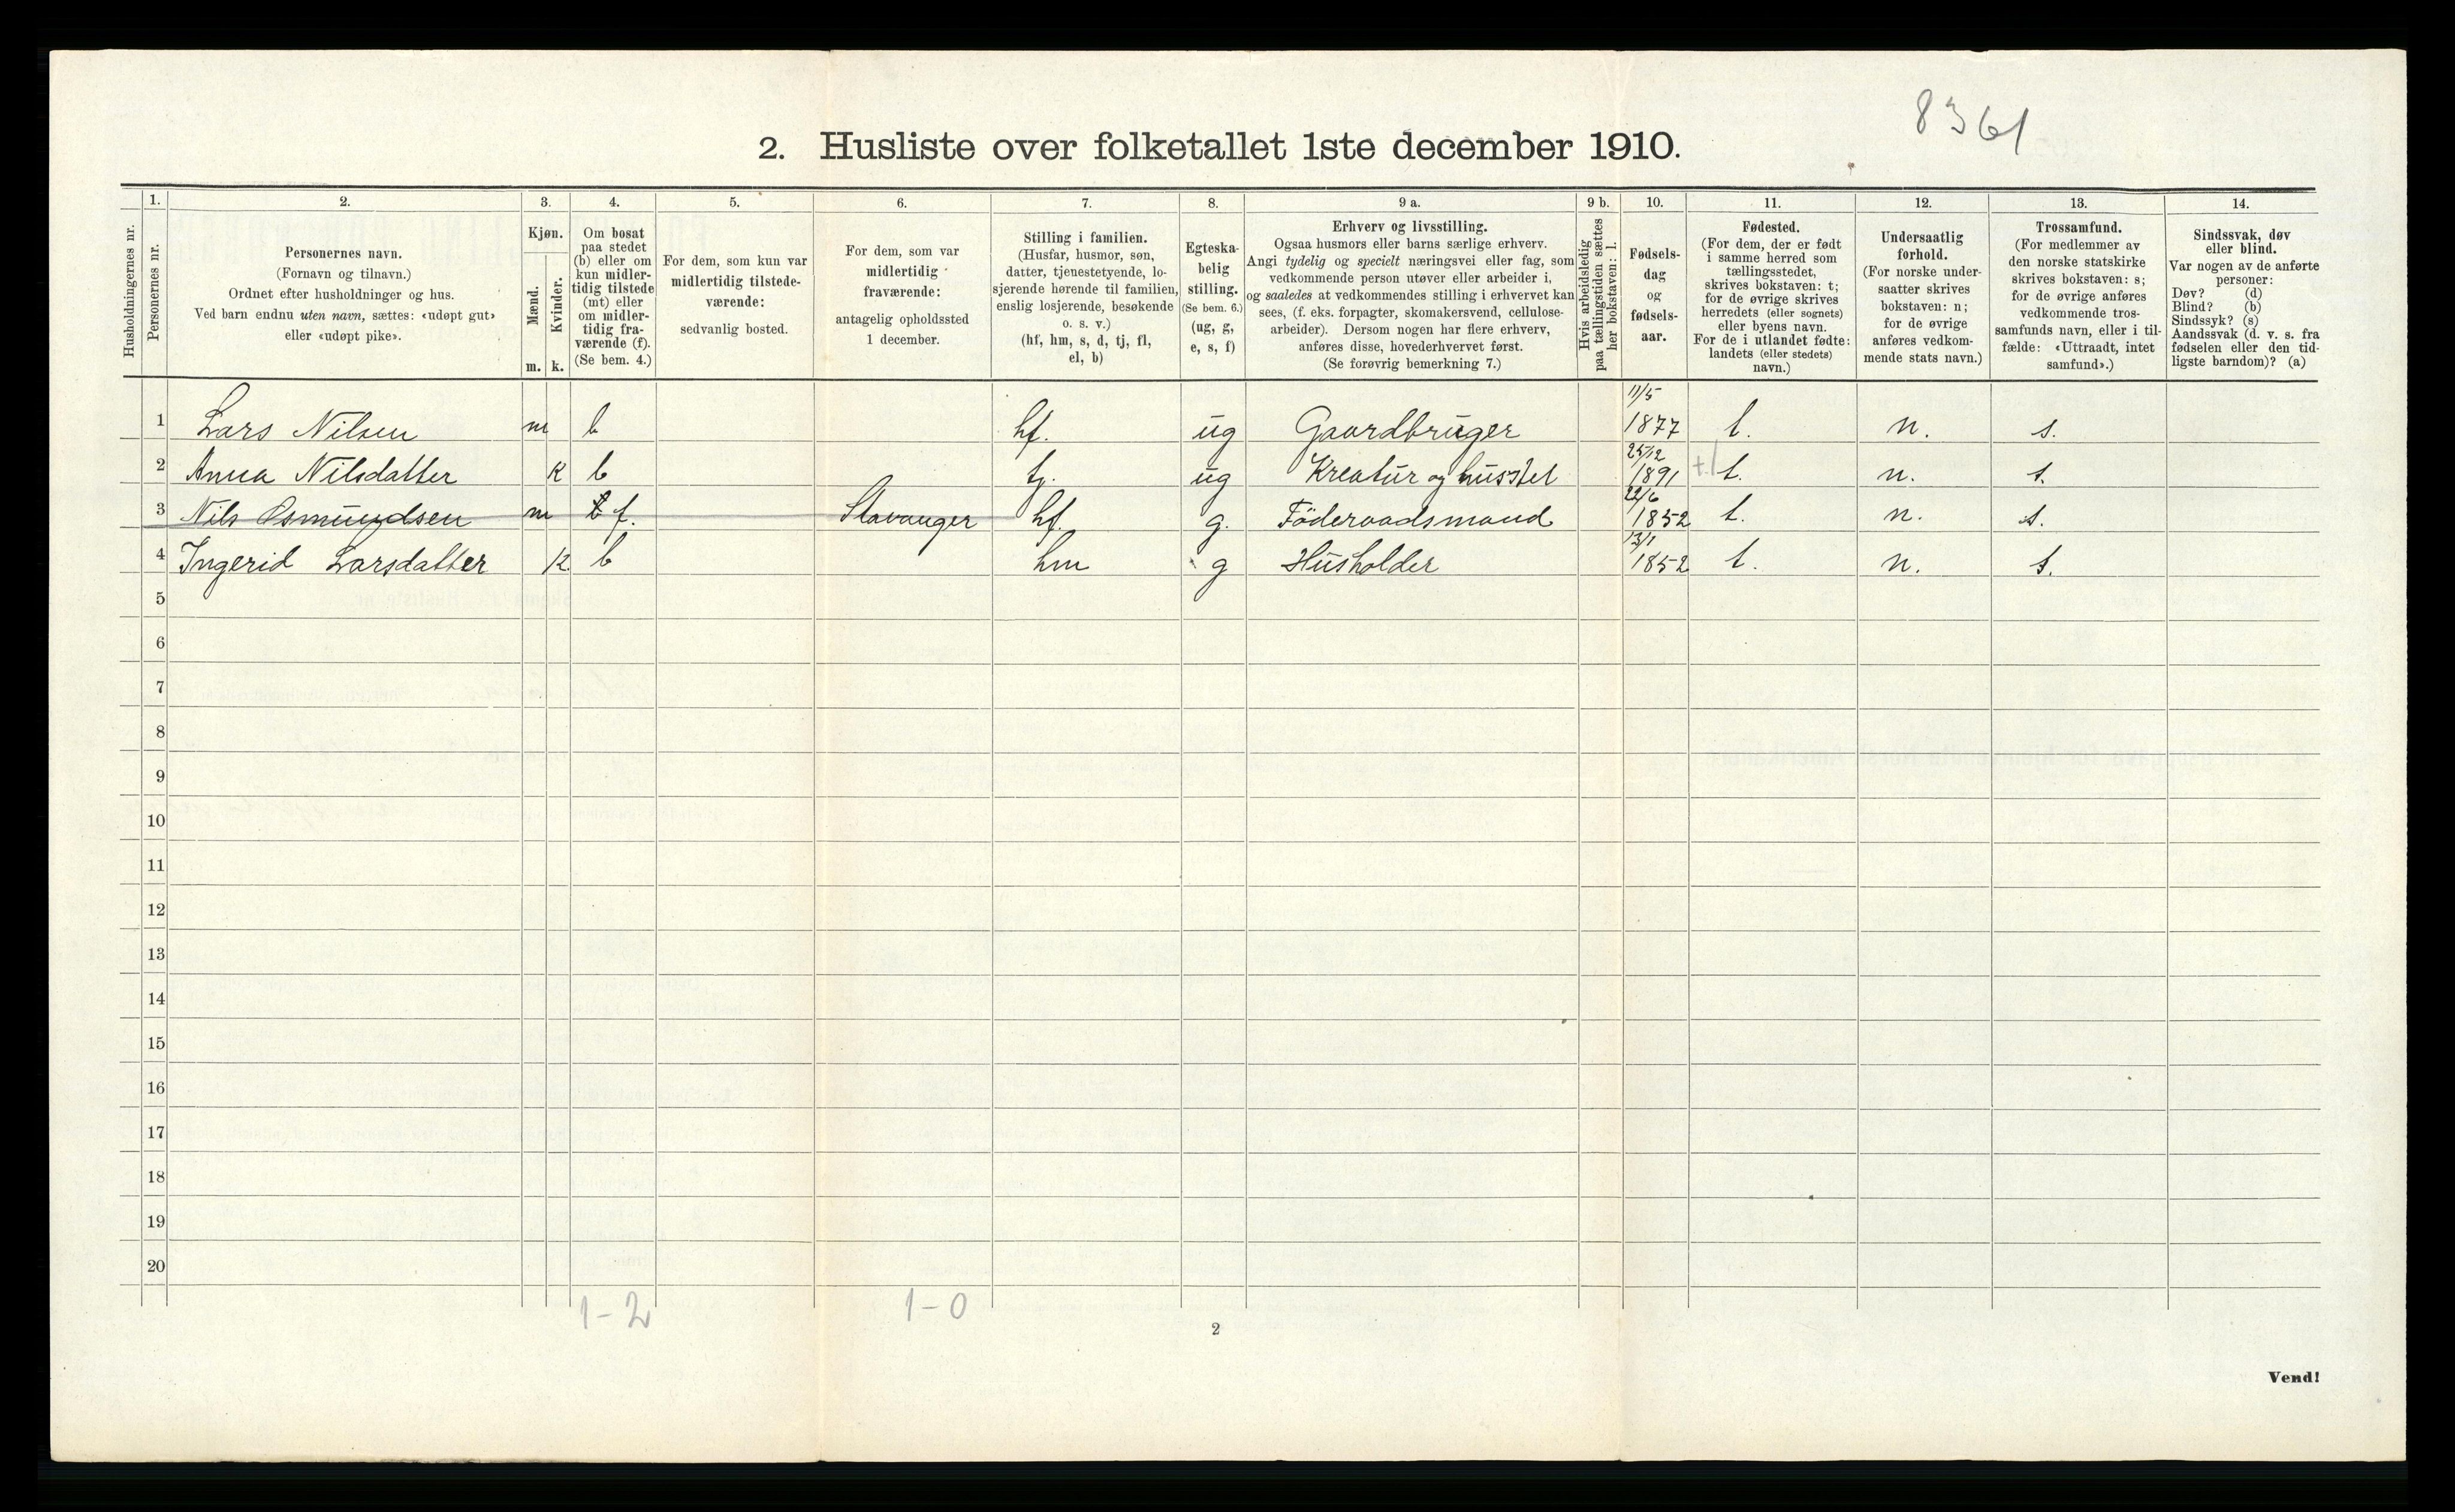 8361
2. Husliste over folketallet 1ste december 1910.
Husholdningernes nr.
1.
Personernes nr.
2.
Personernes navn.
(Fornavn og tilnavn.)
Ordnet efter husholdninger og hus.
Ved barn endnu uten navn, sættes: «udøpt gut»
eller «udøpt pike».
3.
Kjøn.
Mænd.
Kvinder.
m. k.
4.
Om bosat
paa stedet
(b) eller om
kun midler-
tidig tilstede
(mt) eller
om midler-
tidig fra-
værende (f).
(Se bem. 4.)
5.
For dem, som kun var
midlertidig tilstede-
værende:
sedvanlig bosted.
6.
For dem, som var
midlertidig
fraværende:
antagelig opholdssted
1 december.
7.
Stilling i familien.
(Husfar, husmor, søn,
datter, tjenestetyende, lo-
sjerende hørende til familien,
enslig losjerende, besøkende
o. s. v.)
(hf, hm, s, d, tj, fl,
el, b)
8.
Egteska-
belig
stilling.
(Se bem. 6.)
(ug, g,
e, s, f)
9 a.
Erhverv og livsstilling.
Ogsaa husmors eller barns særlige erhverv.
Angi tydelig og specielt næringsvei eller fag, som
vedkommende person utøver eller arbeider i,
og saaledes at vedkommendes stilling i erhvervet kan
sees, (f. eks. forpagter, skomakersvend, cellulose-
arbeider). Dersom nogen har flere erhverv,
anføres disse, hovederhvervet først.
(Se forøvrig bemerkning 7.)
9 b.
Hvis arbeidsledig
paa tællingstiden sættes
her bokstaven: l.
10.
Fødsels-
dag
og
fødsels-
aar.
11.
Fødested.
(For dem, der er født
i samme herred som
tællingsstedet,
skrives bokstaven: t;
for de øvrige skrives
herredets (eller sognets)
eller byens navn.
For de i utlandet fødte:
landets (eller stedets)
navn.)
12.
Undersaatlig
forhold.
(For norske under-
saatter skrives
bokstaven: n;
for de øvrige
anføres vedkom-
mende stats navn.)
13.
Trossamfund.
(For medlemmer av
den norske statskirke
skrives bokstaven: s;
for de øvrige anføres
vedkommende tros-
samfunds navn, eller i til-
fælde: «Uttraadt, intet
samfund».)
14.
Sindssvak, døv
eller blind.
Var nogen av de anførte
personer:
Døv? (d)
Blind? (b)
Sindssyk? (s)
Aandssvak (d. v. s. fra
fødselen eller den tid-
ligste barndom)? (a)
1 Lars Nilsen m b hf. ug Gaardbruger 11/5 1877 t. n. s.
2 Anna Nilsdatter k b tj. ug Kreatur og husstel 25/12 1891 t. n. s.
3 Nils Osmundsen m f. Stavanger hf. g. Föderaadsmand 22/6 1852 t. n. s.
4 Ingerid Larsdatter k b hm g Husholder 13/1 1852 t. n. s.
5
6
7
8
9
10
11
12
13
14
15
16
17
18
19
20
1-2 1-0
2
Vend!